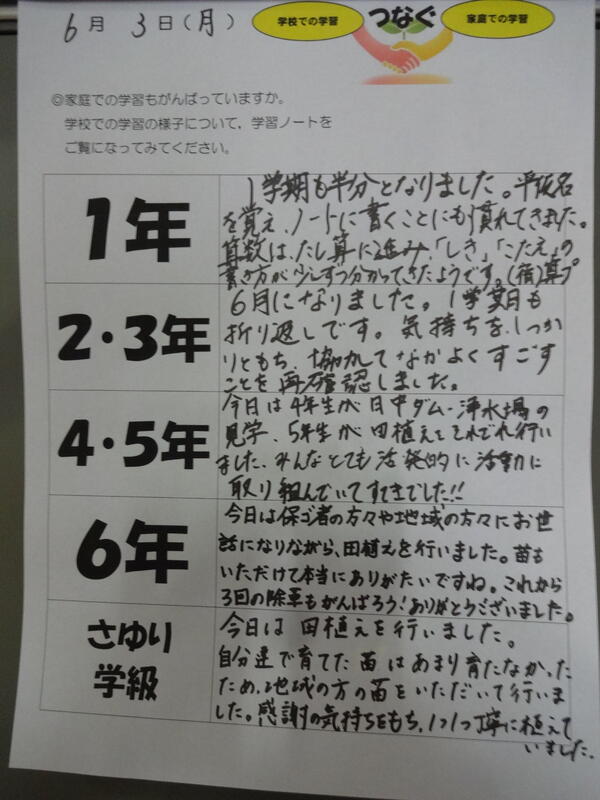 6月 3日(月)
学校での学習
つなぐ
家庭での学習
◎家庭での学習もがんばっていますか。
学校での学習の様子について，学習ノートを
ご覧になってみてください。
1年
1学期も半分となりました。平仮名
を覚え、ノートに書くことにも慣れてきました。
算数は、たし算に進み、「しき」「こたえ」の
書き方が少しずつ分かってきたようです。(宿)算プ
2・3年
6月になりました。1学期も
折り返しです。気持ちを、しっか
りともち、協力してなかよくすごす
ことを再確認しました。
4・5年
今日は4年生が日中ダム・浄水場の
見学、5年生が田植えとそれぞれ行い
ました、みんなとても活発的に活動に
取り組んでいてすてきでした!!
6年
今日は保ゴ者の方々や地域の方々にお世
話になりながら、田植えを行いました。苗も
いただけて本当にありがたいですね。これから
3回の除草もがんばろう!ありがとうございました。
さゆり
学級
今日は田植えを行いました。
自分達で育てた苗はあまり育たなかった
ため、地域の方の苗をいただいて行いま
した。感謝の気持ちをもち、1つ1つ丁寧に植えて
いました。